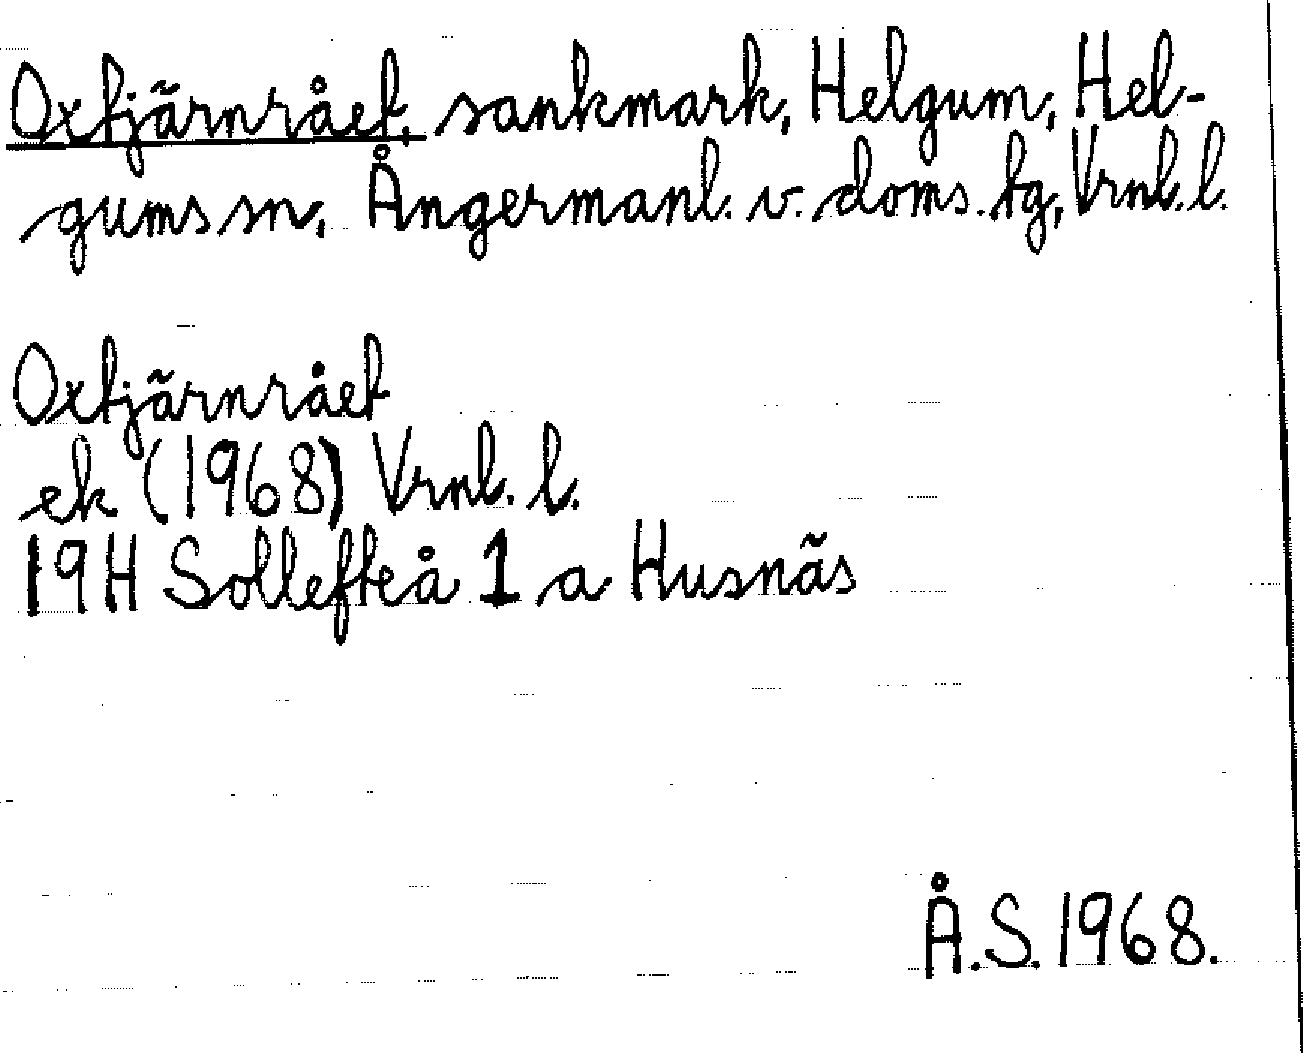 Oxtjärnrået, sankmark, Helgum, Hel-
gums sn, Ångermanl. v. doms. tg, Vrnl. l.
Oxtjärnrået
ek (1968) Vrnl. l.
19H Sollefteå 1 a Husnäs
Å.S. 1968.